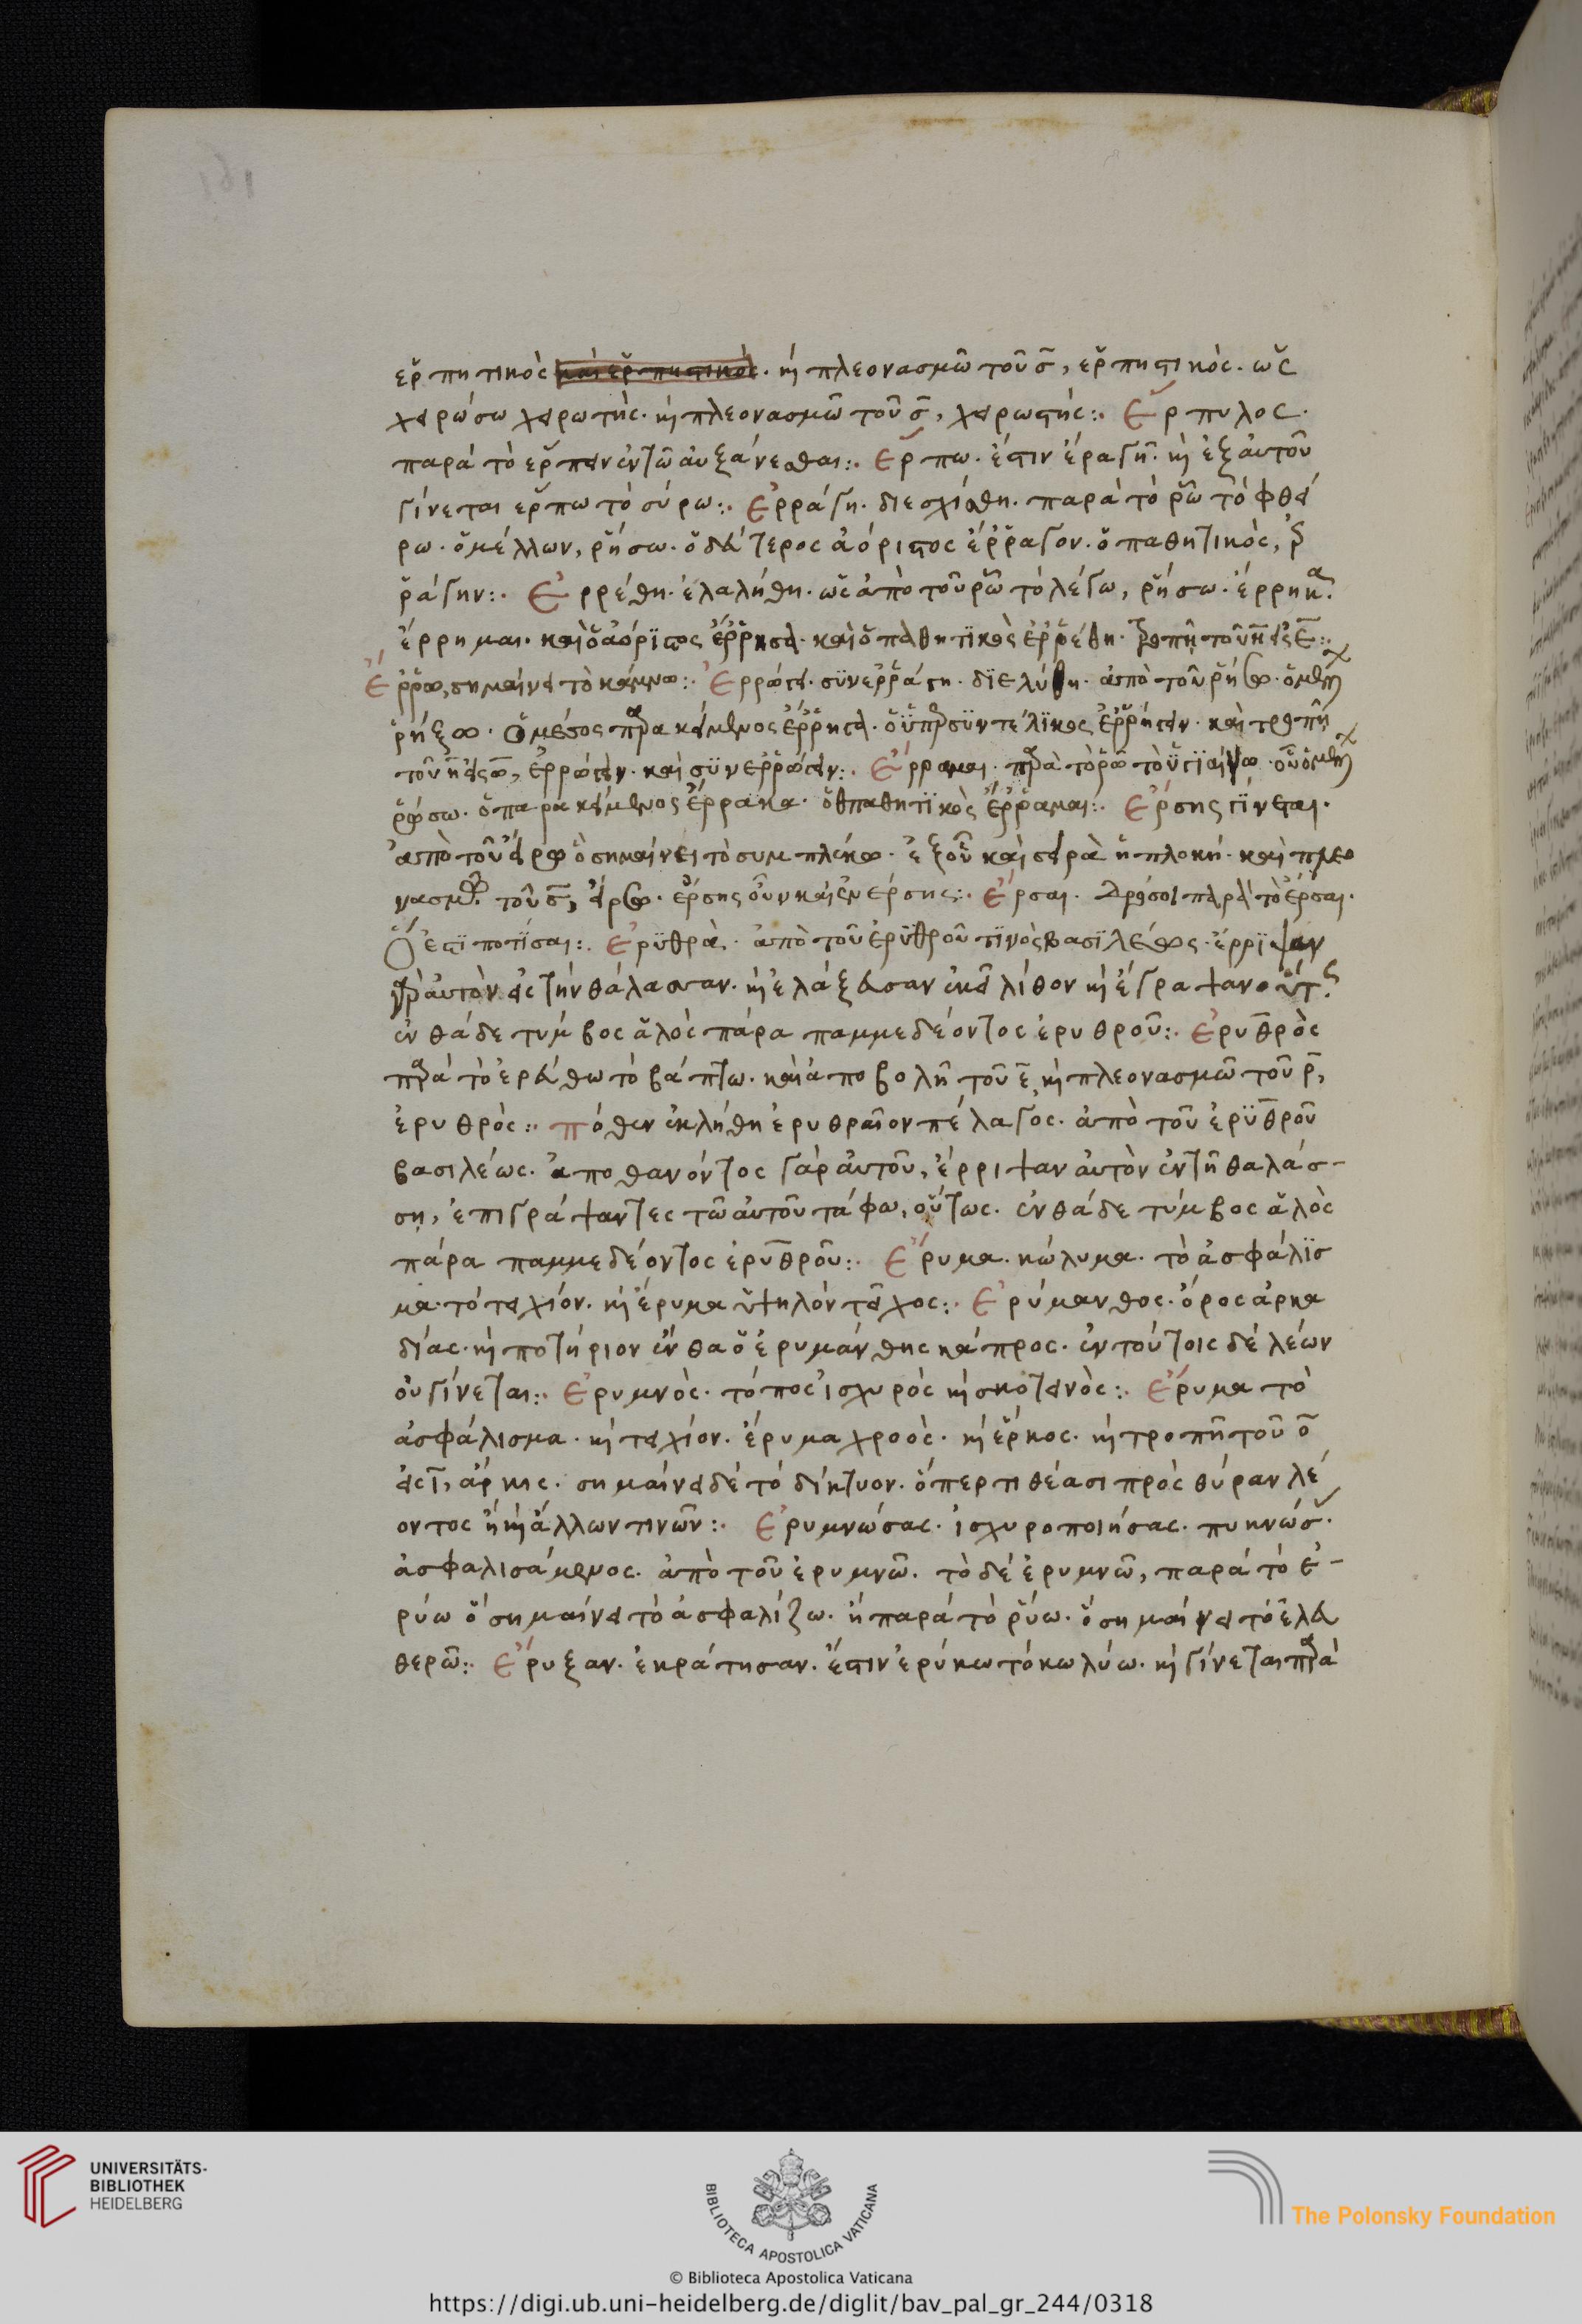 ἑρπητικὸς καὶ ἑρπηστικὸς. καὶ πλεονασμῶ τοῦ σ̄, ἑρπηστικὸς. ὡς
χειρώσω χειρωτὴς. καὶ πλεονασμῶ τοῦ σ̄, χειρωστής:. Ἕρπυλος.
παρά τὸ ἕρπειν ἐν τῶ αὐξάνεσθαι:. Ἕρπω. ἐστιν ἔρα γῆ. καὶ ἐξ αὐτοῦ
γίνεται ἕρπω τὸ σύρω:. Ἐρράγη. διεσχίσθη. παρὰ τὸ ῥῶ τὸ φθεί
ρω. ὁ μέλλων, ῥήσω. ὁ δεύτερος ἀόριστος ἔρραγον. ὁ παθητικὸς, ἐρ
ράγην:. Ἐρρέθη. ἐλαλήθη. ὡς ἀπὸ τοῦ ῥῶ τὸ λέγω, ῥήσω. ἔρρηκα.
ἔρρημαι. καὶ ὁ ἀόριστος ἔρρησα. καὶ ὁ παθητικὸς ἐρρέθη. τροπῆ τοῦ η̄ εἰς ε̄:.
Ἔρρω, σημαίνει τὸ κάμνω:. Ἔρρωγεν. συνερράγη. διελύθη. ἀπὸ τοῦ ῥήσσω. ὁ μέλλων
ῥήξω. ὁ μέσος παρακείμενος ἔρρηγα. ὁ ὑπερσυντέλικος ἐρρήγειν. καὶ τροπῆ
τοῦ η̄ εἰς ω̄, ἐρρώγειν. καὶ συνερρώγειν:. Ἔρραμαι. παρὰ τὸ ῥῶ τὸ ὑγιαίνω. οὗ ὁ μέλλων
ῥώσω. ὁ παρακείμενος ἔρρακα. ὁ παθητικὸς ἔρραμαι:. Ἔρσης γίνεται.
ἀπὸ τοῦ εἴρω ὃ σημαίνει τὸ συμπλέκω. ἐξ οὗ καὶ σειρὰ ἡ πλοκή. καὶ πλεο
νασμῶ τοῦ σ̄, εἴρσω. ἔρσης οὖν καὶ ἐνέρσης:. Ἔρσαι. δρόσοι παρὰ τὸ ἔρσαι.
ὅ ἐστι ποτίσαι:. Ἐρυθρὰ. ἀπὸ τοῦ ἐρυθροῦ τινὸς βασιλέως. ἔρριψαν
γὰρ αὐτὸν εἰς τὴν θάλασσαν. καὶ ἐλάξευσαν ἐκεῖ λίθον καὶ ἔγραψαν οὕτως
ἐνθάδε τύμβος ἁλὸς πάρα παμμεδέοντος ἐρυθροῦ:. Ἐρυθρὸς
παρὰ τὸ ἐρεύθω τὸ βάπτω. καὶ ἀποβολῆ τοῦ ε̄ καὶ πλεονασμῶ τοῦ ρ̄,
ἐρυθρὸς:. πόθεν ἐκλήθη ἐρυθραῖον πέλαγος. ἀπὸ τοῦ ἐρυθροῦ
βασιλέως. ἀποθανόντος γὰρ αὐτοῦ, ἔρριψαν αὐτὸν ἐν τῆ θαλάσ-
ση, ἐπιγράψαντες τῶ αὐτοῦ τάφω, οὕτως. ἐνθάδε τύμβος ἁλὸς
πάρα παμμεδέοντος ἐρυθροῦ:. Ἔρυμα. κώλυμα. τὸ ἀσφάλισ
μα. τὸ τειχίον. καὶ ἔρυμα ὑψηλὸν τεῖχος:. Ἐρύμανθος. ὄρος ἀρκα
δίας. καὶ ποτήριον ἔνθα ὁ ἐρυμάνθης κάπρος. ἐν τούτοις δὲ λέων
οὐ γίνεται:. Ἐρυμνὸς. τόπος ἰσχυρὸς καὶ σκοτεινὸς:. Ἔρυμα τὸ
ἀσφάλισμα. καὶ τειχίον. ἔρυμα χροὸς. καὶ ἕρκος. καὶ τροπῆ τοῦ ο̄
εἰς ῑ, ἄρκις. σημαίνει δὲ τὸ δίκτυον. ὅπερ τιθέασι πρὸς θύραν λέ
οντος ἢ καὶ ἄλλων τινῶν:. Ἐρυμνώσας. ἰσχυροποιήσας. πυκνώσ.
ἀσφαλισάμενος. ἀπὸ τοῦ ἐρυμνῶ. τὸ δὲ ἐρυμνῶ, παρὰ τὸ ἐ-
ρύω ὃ σημαίνει τὸ ἀσφαλίζω. ἢ παρὰ τὸ ῥύω. ὃ σημαίνει τὸ ἐλευ
θερῶ:. Ἔρυξαν. ἐκράτησαν. ἔστιν ἐρύκω τὸ κωλύω. καὶ γίνεται παρὰ
UNIVERSITÄTS-
BIBLIOTHEK
HEIDELBERG
BIBLIOTECA APOSTOLICA VATICANA
The Polonsky Foundation
© Biblioteca Apostolica Vaticana
https://digi.ub.uni-heidelberg.de/diglit/bav_pal_gr_244/0318